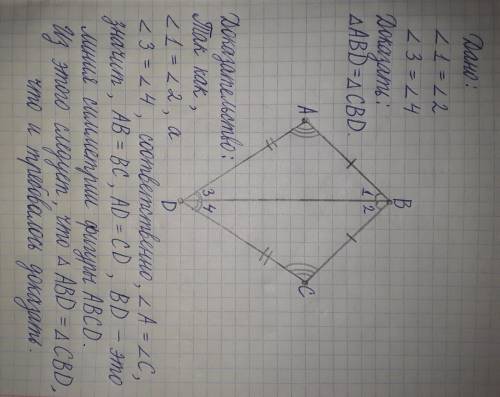 Дано:
∠1 = ∠2
∠3 = ∠4
Доказать:
△ABD = △CBD.
A
B
C
D
1
2
3
4
Доказательство:
Так как,
∠1 = ∠2, а
∠3 = ∠4, соответственно, ∠A = ∠C,
значит, AB = BC, AD = CD, BD - это
линия симметрии фигуры ABCD.
Из этого следует, что △ABD = △CBD,
что и требовалось доказать.